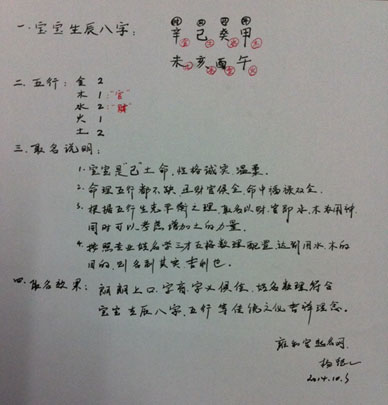 时 日 月 年
一. 宝宝生辰八字: 辛 己 癸 甲
未 亥 酉 午
二. 五行: 金 2
木 1:"官"
水 2:"财"
火 1
土 2
三. 取名说明:
1. 宝宝是"己"土命,性格诚实、温柔。
2. 命理五行都不缺,且财官俱全,命中福禄双全。
3. 根据五行生克平衡之理,取名以财、官即水、木为用神
同时可以考虑增加土的力量。
4. 按照专业姓名学三才五格数理配置,达到用水、木的
目的,则名副其实,吉利也。
四. 取名效果: 朗朗上口,字音、字义俱佳,姓名数理符合
宝宝生辰八字、五行等传统文化吉祥理念。
雍和宫起名网
2014.10.5